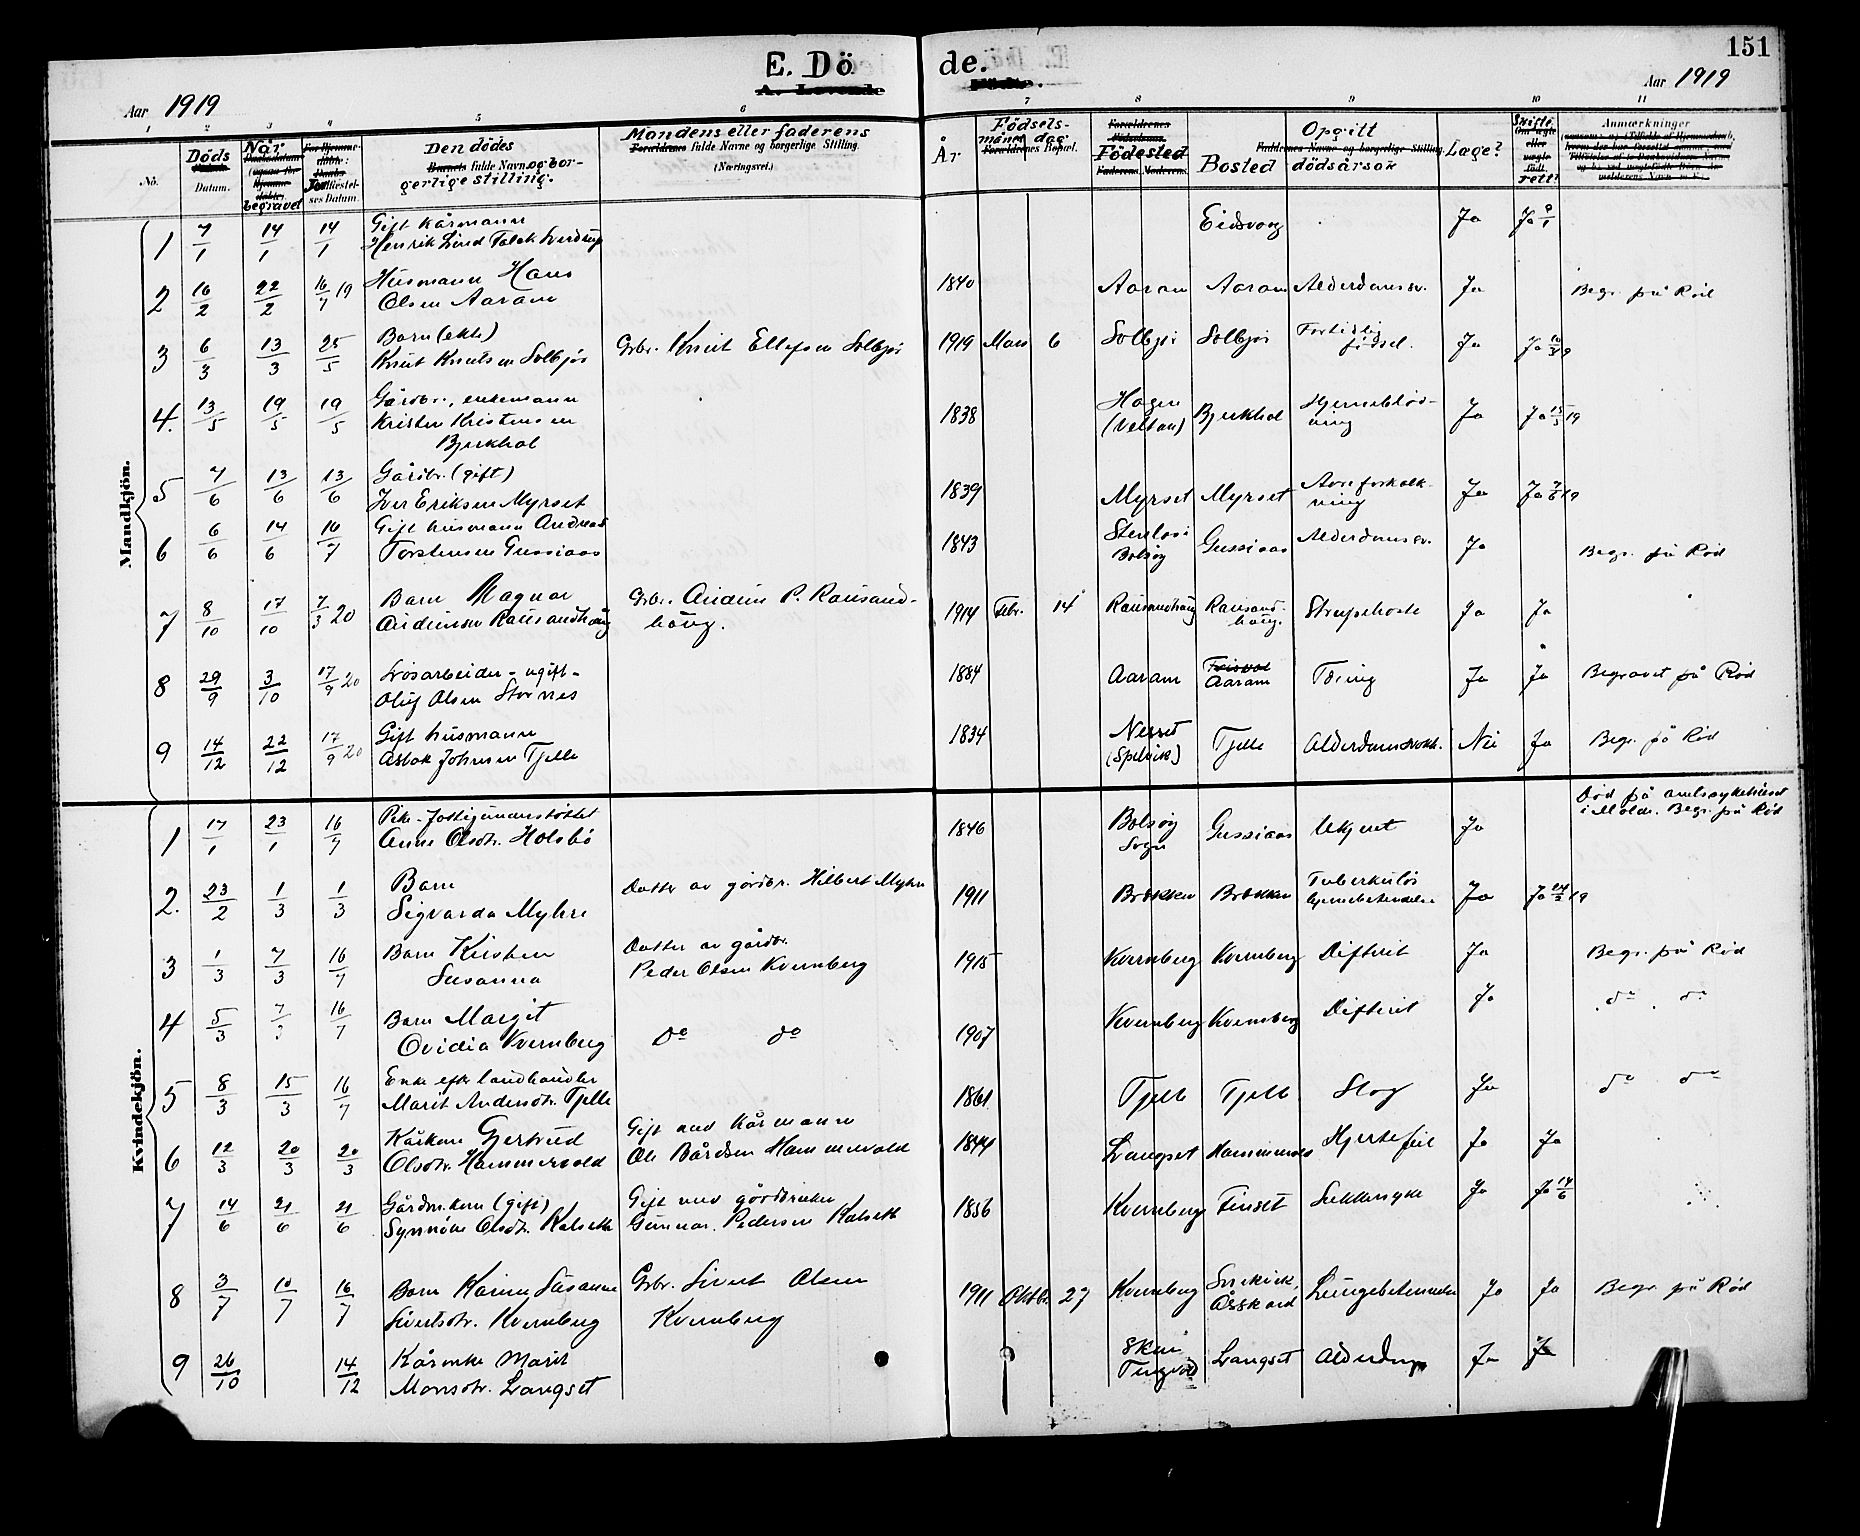 151
E. Dö de.
A. Levende Födte.
Aar 1919 Aar 1919
1 2 3 4 5 6 7 8 9 10 11
No. Döds Datum. Når begravet For Jordfæstelses Datum. Den dödes fulde Navn og borgerlige stilling. Mandens eller faderens fulde Navne og borgerlige Stilling. (Næringsvei.) År Födsels- måned dag Födested Bosted Opgitt dödsårsak Læge? Skifterett? Anmærkninger
Mandkjön.
1 7/1 14/1 14/1 Gift kårmann Eidsvaag Ja Ja 8/1
Henrik Lind Falck Sverdrup
2 16/2 22/2 16/7 19 Husmann Hans 1840 Aaram Aaram Alderdomssv. Ja Begr. på Röd
Olsen Aaram
3 6/3 13/3 25/5 Barn (ekte) Grbr. Knut Ellefsen Solbjör 1919 Mars 6 Solbjör Solbjör Fortidlig födsel. Ja Ja 10/3 19
Knut Knutsen Solbjör
4. 13/5 19/5 19/5 Gårdbr., enkemann 1838 Hagen (Veltan) Bjerkhol Hjerneblödning Ja Ja 15/5 19
Kristen Kristensen
Bjerkhol
5 7/6 13/6 13/6 Gårdbr. (gift) 1839 Myrset Myrset Aareforkalkning Ja Ja 7/6 19
Iver Eriksen Myrset
6 6/6 14/6 16/7 Gift husmann Andreas 1843 Bolsöy Gussiaas Alderdomssv. Ja Begr. på Röd
Torstensen Gussiaas
7 8/10 17/10 7/3 20 Barn Magnar Grbr. Andrias P. Rausand- 1914 Febr. 14 Rausandhaug Rausand- haug. Strupehoste Ja Ja
Andreassen Rausandhaug haug.
8 29/9 3/10 17/9 20 Lösarbeider - ugift - 1884 Aaram Aaram Tæring Ja Ja Begravet på Röd
Oluf Olsen Stornes
9 14/12 22/12 17/9 20 Gift husmann 1834 Nesset (Spelvik) Tjelle Alderdomssvakh. Nei Ja Begr. på Röd
Aslak Johnsen Tjelle
Kvindekjön.
1 17/1 23/1 16/7 Pike - fattigunderstöttet 1846 Bolsöy Sogn Gussiaas Ukjent Ja Död på amtssykehuset
Anne Olsdtr. Holsbö i Molde. Begr. på Röd
2. 23/2 1/3 1/3 Barn Datter av gårdbr. Hilbert Myhre 1911 Brakken Brakken Tuberkulös hjernebetændelse Ja Ja 19
Sigvarda Myhre
3 1/3 7/3 16/7 Barn Kirsten Datter av gårdbr. 1915 Kvernberg Kvernberg Difterit Ja Begr. på Röd
Susanna Peder Olsen Kvernberg
4 5/3 7/3 16/7 Barn Margit do do 1907 Kvernberg Kvernberg Difterit Ja do do
Ovidia Kvernberg
5 8/3 15/3 16/7 Enke efter landhandler 1861 Tjelle Tjelle Slag Ja do do
Marit Andersdtr. Tjelle
6 12/3 20/3 20/3 Kårkone Gjertrud Gift med kårmann 1844 Langset Hammervold Hjertefeil Ja Ja
Olsdtr. Hammervold Ole Bårdsen Hammervold
7 14/6 21/6 21/6 Gårdmkone (gift) Gift med gårdbruker 1856 Kvernberg Finset Sukkersyke Ja Ja 14/6
Synnöve Olsdtr. Kalseth Gunnar Pedersen Kalseth
8 3/7 10/7 16/7 Barn Karen Susanne Grbr. Sivert Olsen 1911 Oktbr. 27 Kvernberg Åsskard Lungebetændelse Ja Ja Begr. på Röd
Sivertsdtr. Kvernberg Kvernberg
9 26/10 14/12 Kårenke Marit Tingvold Langset Alderdom Ja Ja
Monsdtr. Langset